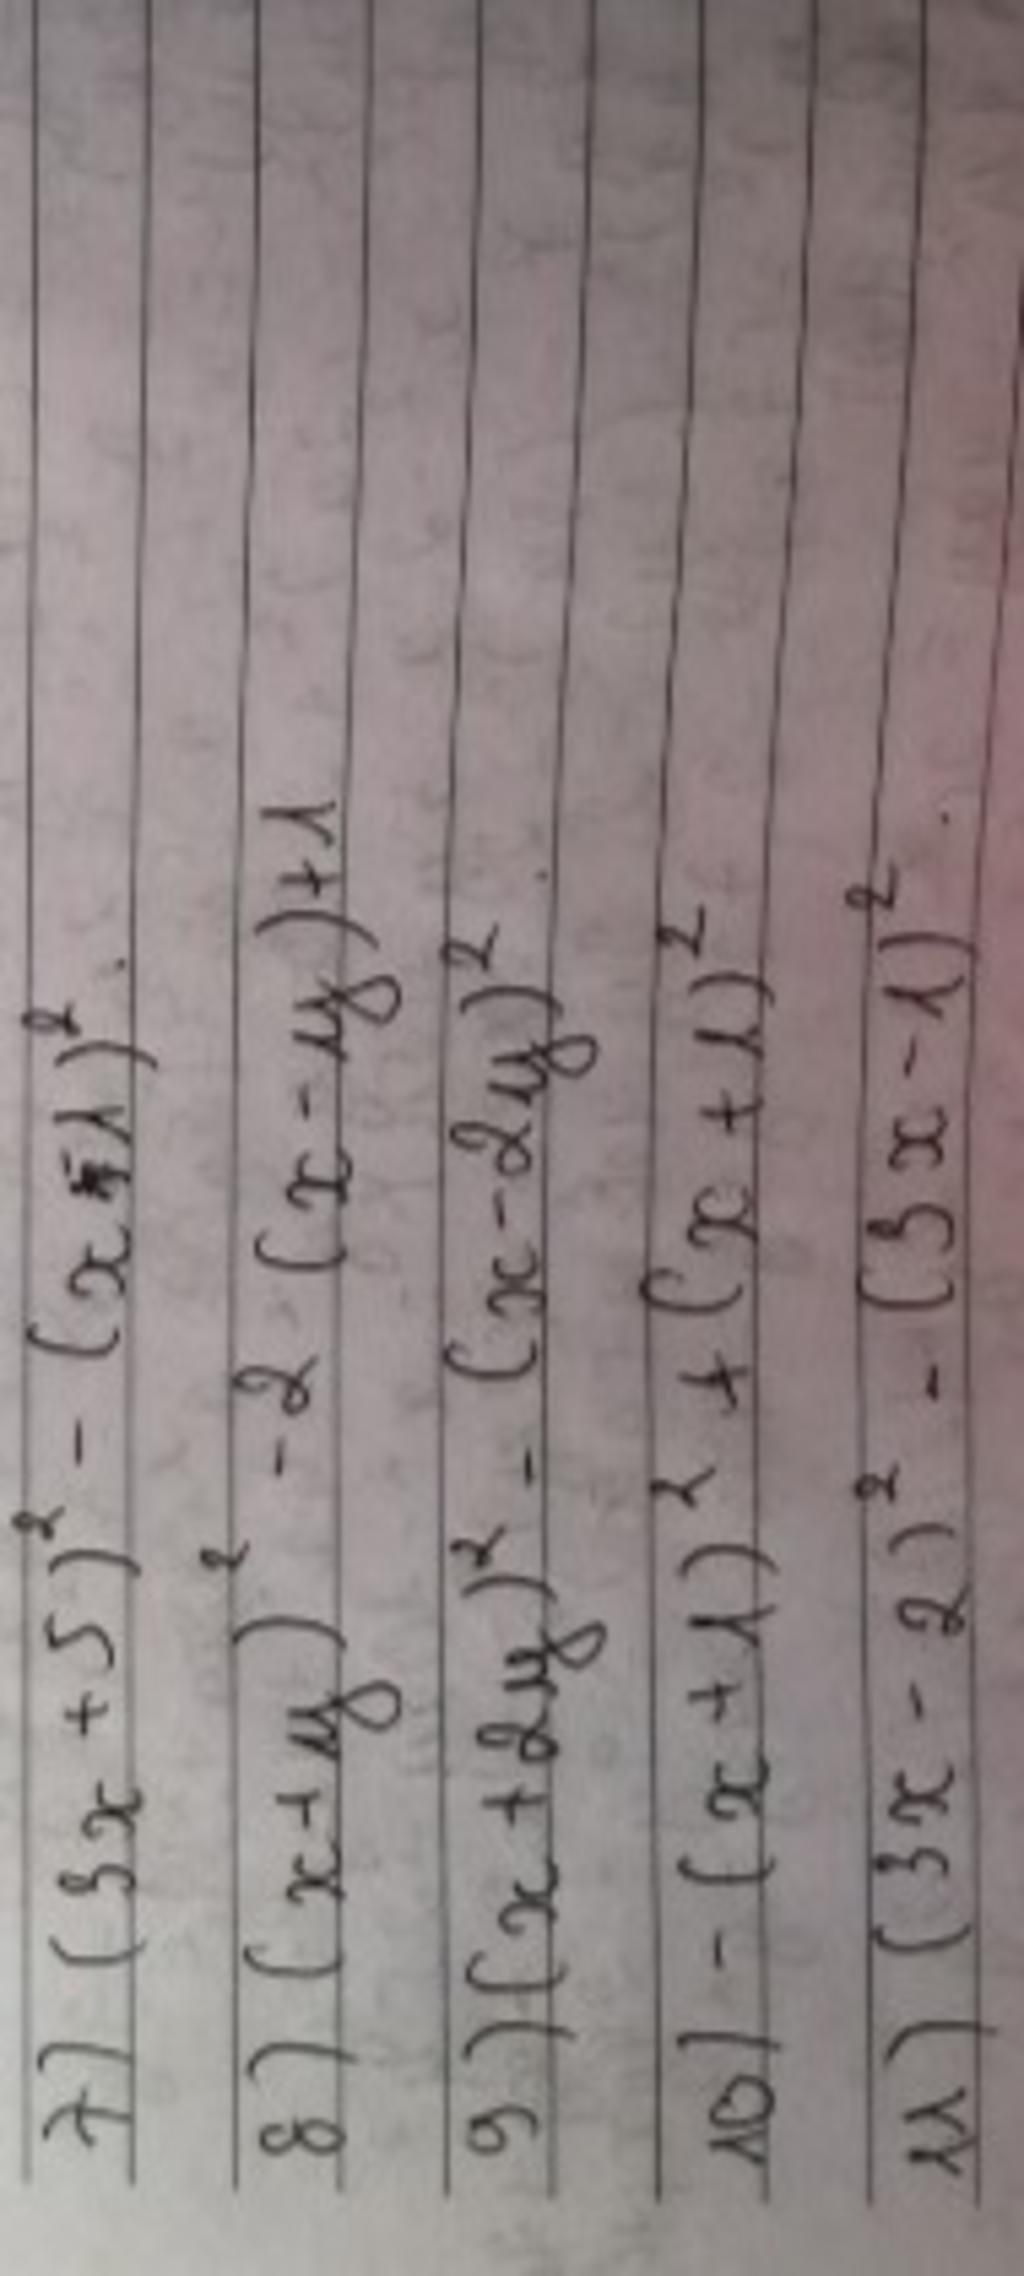 7) (3x + 5)² - (x - 1)².
8) (x + y)² - 2 (x - y) + 1
9) (x + 2y)² - (x - 2y)².
10) - (x + 1)² + (x + 1)²
11) (3x - 2)² - (3x - 1)².